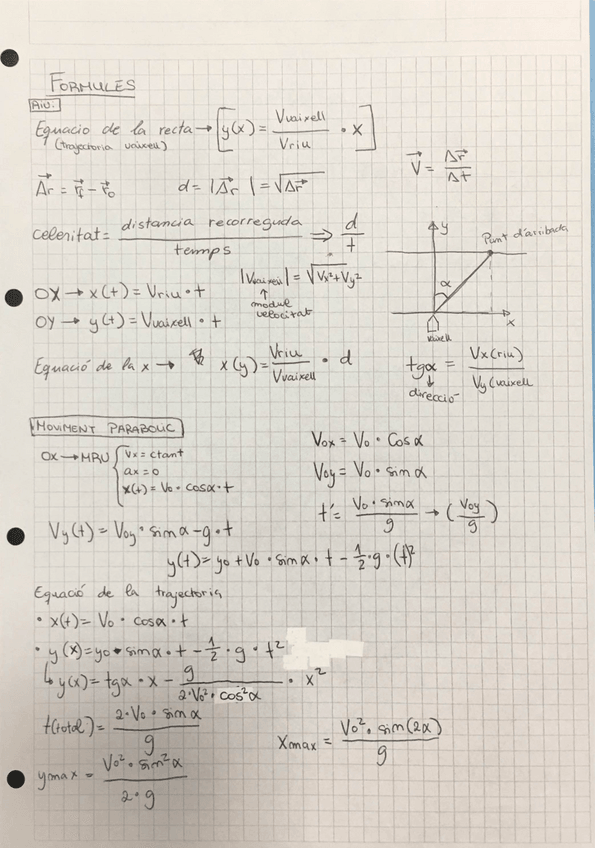 FORMULES
RIU.
Equació de la recta → [y(x) = Vvaixell / Vriu · x]
(trajectoria vaixell)
V⃗ = Δr⃗ / Δt
Δr⃗ = r⃗f - r⃗0    d = |Δr⃗| = √Δr⃗
celeritat = distancia recorreguda / temps ⇒ d / t
y
Punt d'arribada
α
x
vaixell
|Vvaixell| = √Vx²+Vy²
↑
modul
velocitat
OX → x(t) = Vriu · t
OY → y(t) = Vvaixell · t
Equació de la x → x(y) = Vriu / Vvaixell · d
tgα = Vx(riu) / Vy(vaixell
↓
direcció
MOVIMENT PARABOLIC
OX → MRU { Vx = ctant
ax = 0
x(t) = V0 · cosα · t
Vox = V0 · Cosα
Voy = V0 · sinα
t' = V0 · sinα / g → (Voy / g)
Vy(t) = Voy · sinα - g · t
y(t) = y0 + V0 · sinα · t - 1/2 · g · (t)²
Equació de la trajectoria
· x(t) = V0 · cosα · t
· y(x) = y0 · sinα · t - 1/2 · g · t²
↳ y(x) = tgα · x - g / 2·V0²·cos²α · x²
t(total) = 2·V0·sinα / g
Xmax = V0² · sin(2α) / g
ymax = V0² · sin²α / 2·g